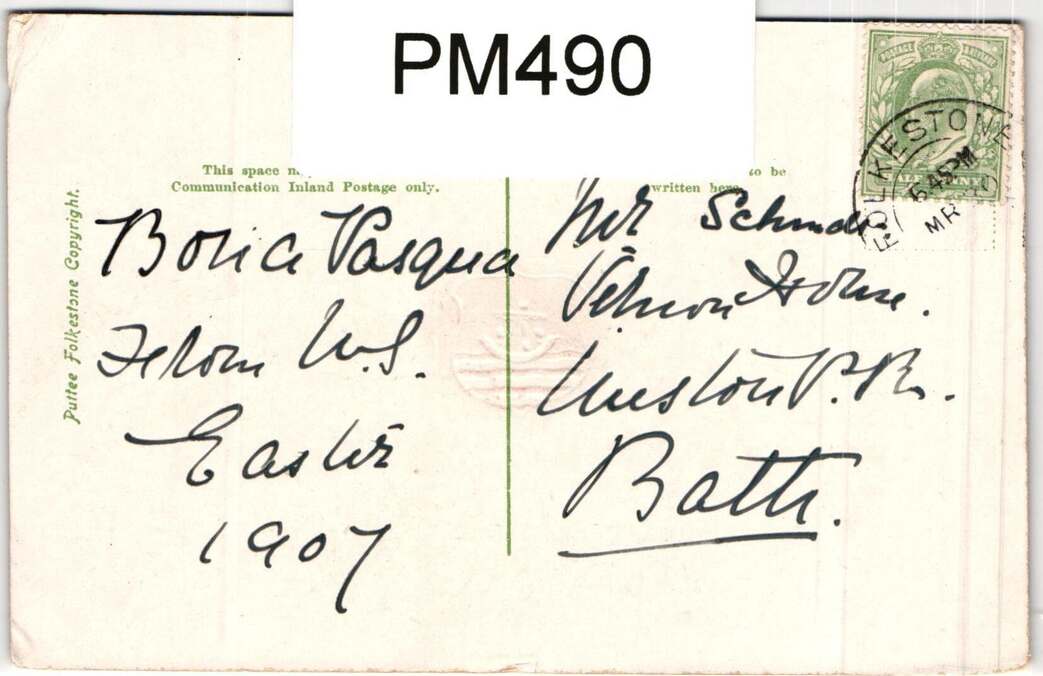 PM490
This space m
Communication Inland Postage only.
to be
written here
Puttee Folkestone Copyright.
Bona Pasqua
From W.S.
Easter
1907
Mr Schmdt
Vernon House.
Weston P. R.
Bath.
POSTAGE
HALF PENNY
FOLKESTONE
6.45PM
MR